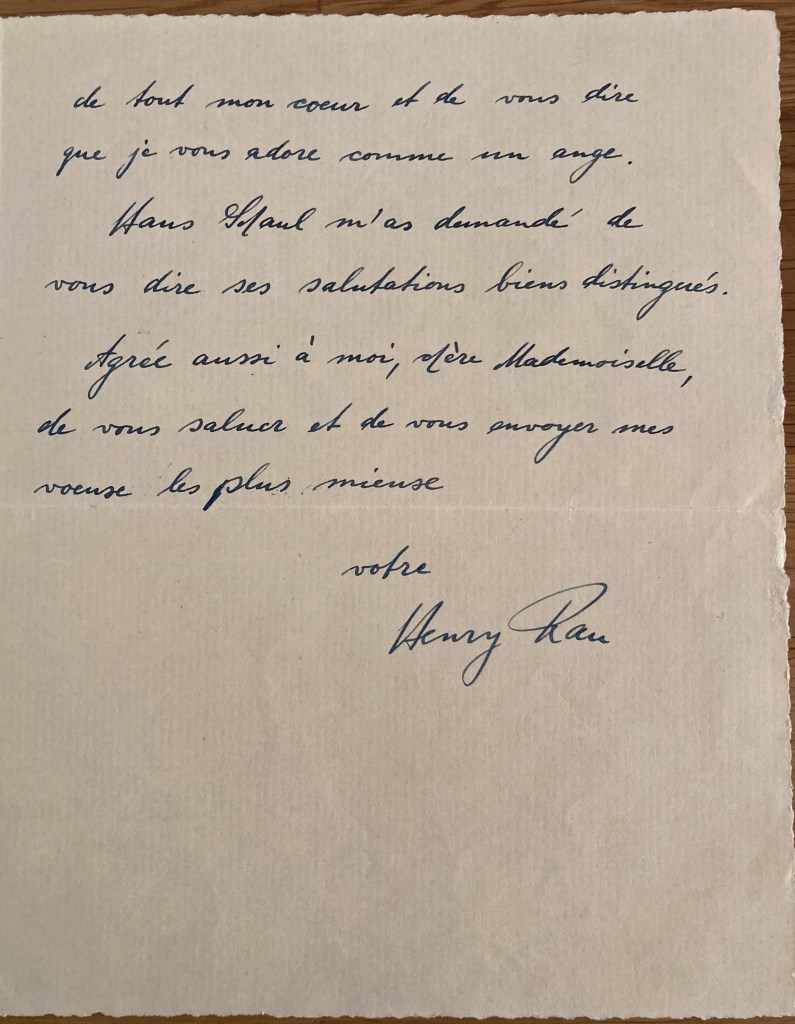 de tout mon coeur et de vous dire
que je vous adore comme un ange.
Hans m'as demandé de
vous dire ses salutations biens distingués.
Agrée aussi à moi, chère Mademoiselle,
de vous saluer et de vous envoyer mes
voeuse les plus mieuse
votre
Henry Rau